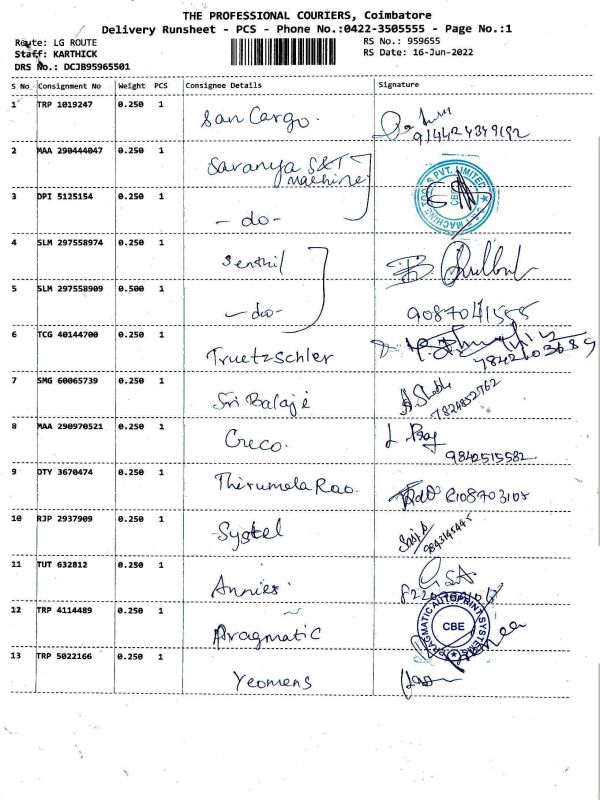 THE PROFESSIONAL COURIERS, Coimbatore
Delivery Runsheet - PCS - Phone No.:0422-3505555 - Page No.:1
Route: LG ROUTE
RS No.: 959655
Staff: KARTHICK
RS Date: 16-Jun-2022
DRS No.: DCJB95965501
S No Consignment No Weight PCS Consignee Details Signature
1 TRP 1019247 0.250 1 San Cargo.
2 MAA 290444047 0.250 1 Saranya S&T
machine
3 DPI 5125154 0.250 1 - do -
4 SLM 297558974 0.250 1 Senthil
5 SLM 297558909 0.500 1 - do - 9087041555
6 TCG 40144700 0.250 1 Truetzschler 7842603689
7 SMG 60065739 0.250 1 Sri Balaji 7824852762
8 MAA 290970521 0.250 1 Creco. 9842515582
9 DTY 3670474 0.250 1 Thirumala Rao.
10 RJP 2937909 0.250 1 Systel
11 TUT 632812 0.250 1 Annies.
12 TRP 4114489 0.250 1 Pragmatic PRAGMATIC AUTOPRINT SYSTEMS CBE
13 TRP 5022166 0.250 1 Yeomens